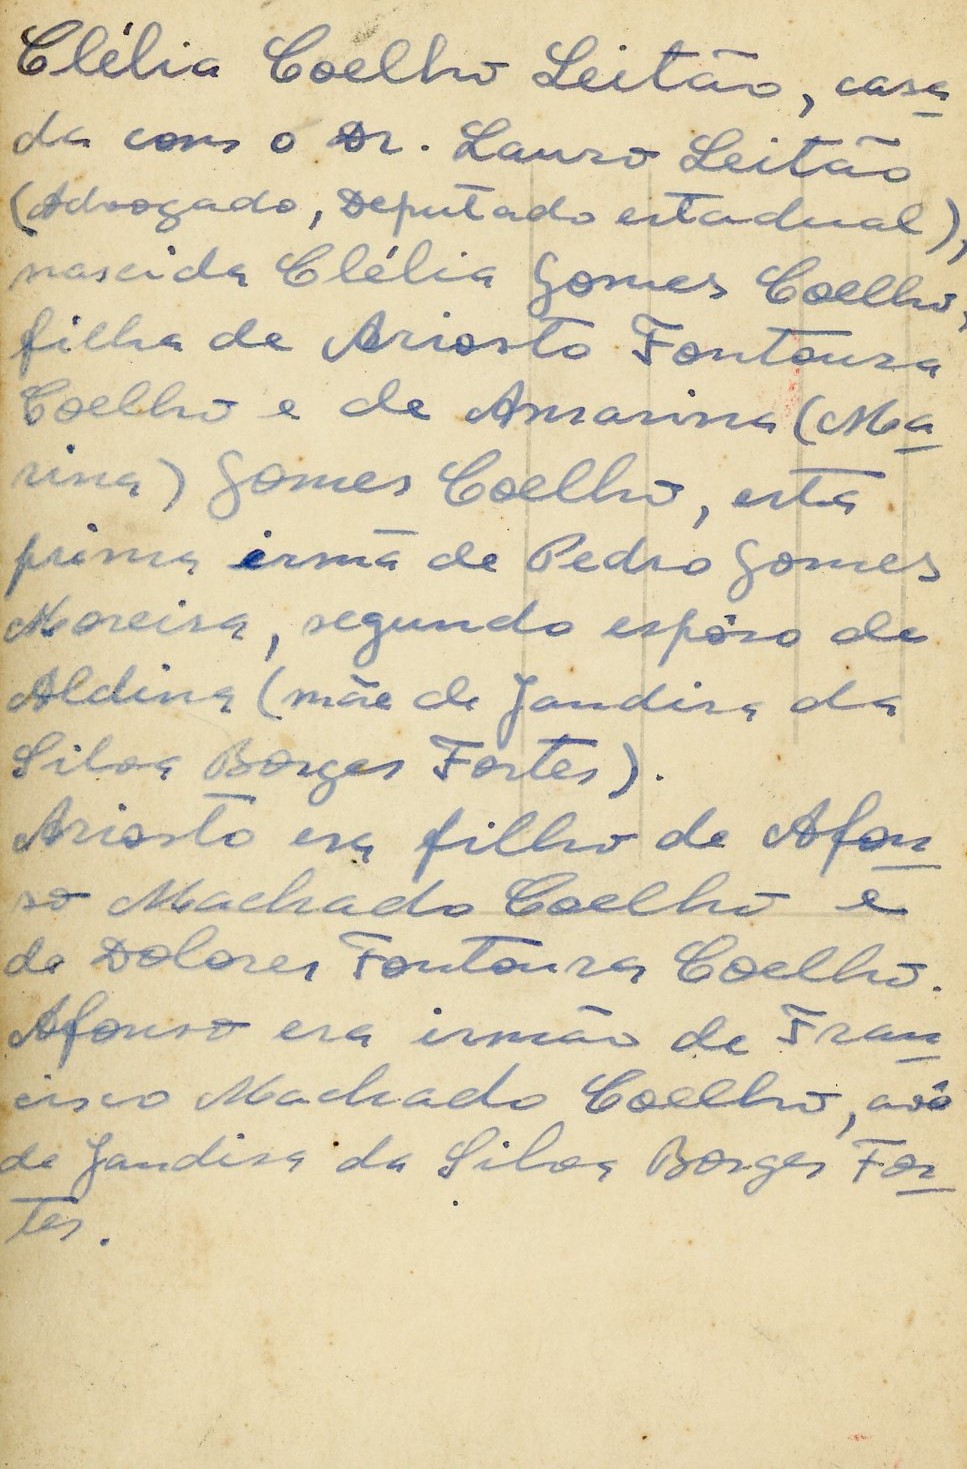 Clélia Coelho Leitão, casa
da com o Dr. Lauro Leitão
(Advogado, Deputado estadual),
nascida Clélia Gomes Coelho,
filha de Ariosto Fontoura
Coelho e de Amarina (Ma
rina) Gomes Coelho, esta
prima irmã de Pedro Gomes
Moreira, segundo espôso de
Aldina (mãe de Jandira da
Silva Borges Fortes).
Ariosto era filho de Afon
so Machado Coelho e
de Dolores Fontoura Coelho.
Afonso era irmão de Fran
cisco Machado Coelho, avô
de Jandira da Silva Borges For
tes.